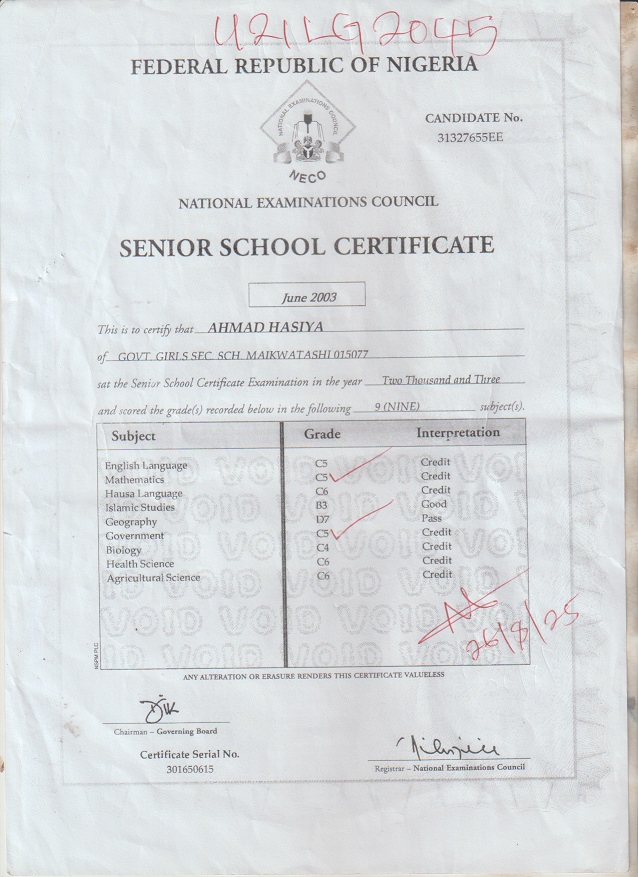 U21LG2045
FEDERAL REPUBLIC OF NIGERIA
NATIONAL EXAMINATIONS COUNCIL
NECO
CANDIDATE No.
31327655EE
NATIONAL EXAMINATIONS COUNCIL
SENIOR SCHOOL CERTIFICATE
June 2003
This is to certify that AHMAD HASIYA
of GOVT. GIRLS SEC. SCH. MAIKWATASHI 015077
sat the Senior School Certificate Examination in the year Two Thousand and Three
and scored the grade(s) recorded below in the following 9 (NINE) subject(s).
Subject Grade Interpretation
English Language C5 Credit
Mathematics C5 Credit
Hausa Language C6 Credit
Islamic Studies B3 Good
Geography D7 Pass
Government C5 Credit
Biology C4 Credit
Health Science C6 Credit
Agricultural Science C6 Credit
VOID VOID VOID VOID
26/8/25
NSPM PLC
ANY ALTERATION OR ERASURE RENDERS THIS CERTIFICATE VALUELESS
Chairman – Governing Board
Certificate Serial No.
301650615
Registrar – National Examinations Council